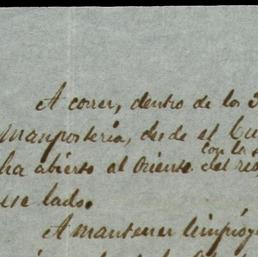 A correr, dentro de los
Manposteria, desde el
con la
ha abierto al Oriente del
ese lado.
A mantener limpio